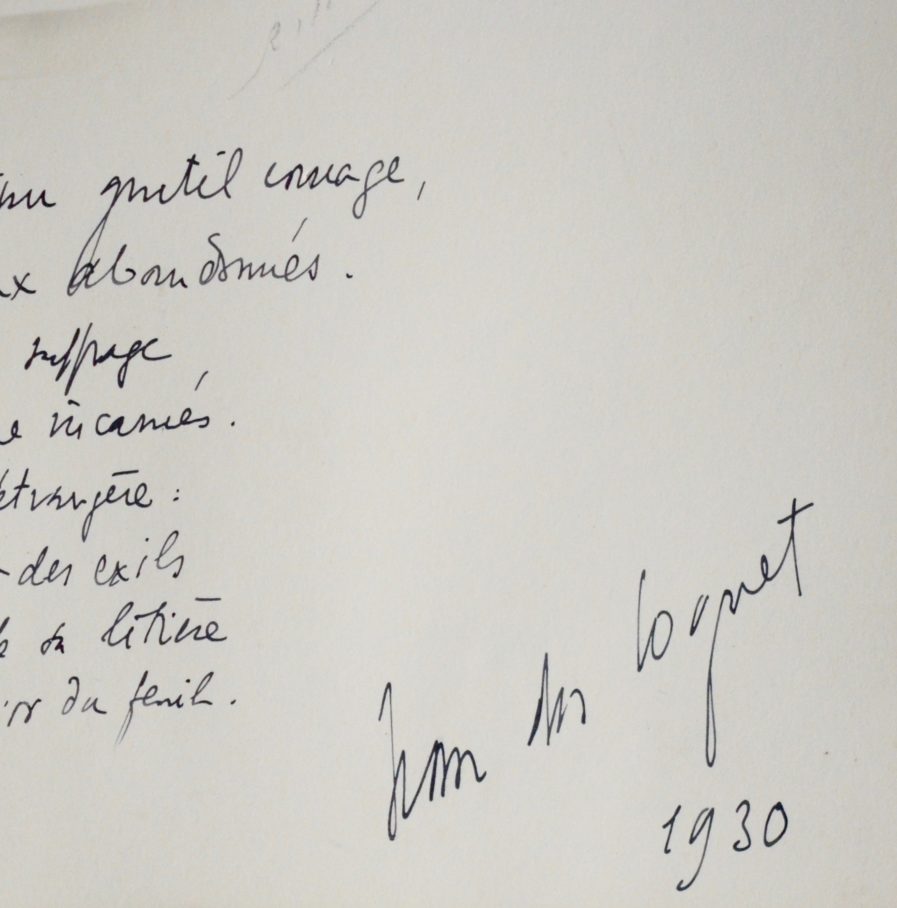 gentil courage,
abandonnés.
suffrage
incarnés.
étrangère :
des exils
sa litière
du fenil.
Jean des Cognets
1930